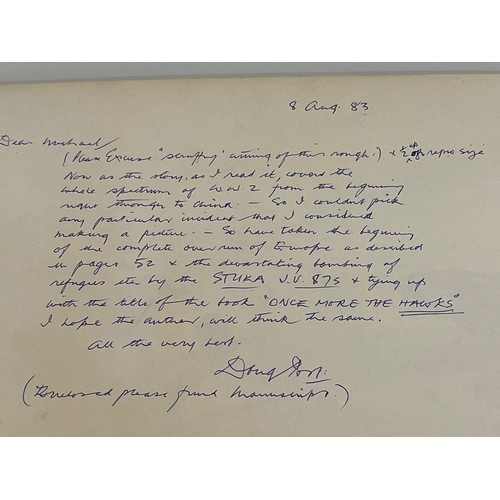 8 Aug. 83
Dear Michael
(Please Excuse "scruffy" writing of this rough.) + ½ up of repro size
Now as the story, as I read it, covers the
whole spectrum of WW2 from the begining
right through to China. — So I couldn't pick
any particular incident that I considered
making a picture. — So have taken the begining
of the complete over run of Europe as described
in pages 52 & the devastating bombing of
refugees etc by the STUKA J.U. 87s & tying up
with the title of the book "ONCE MORE THE HAWKS"
I hope the author, will think the same.
All the very best.
Doug
(Enclosed please find Manuscript.)